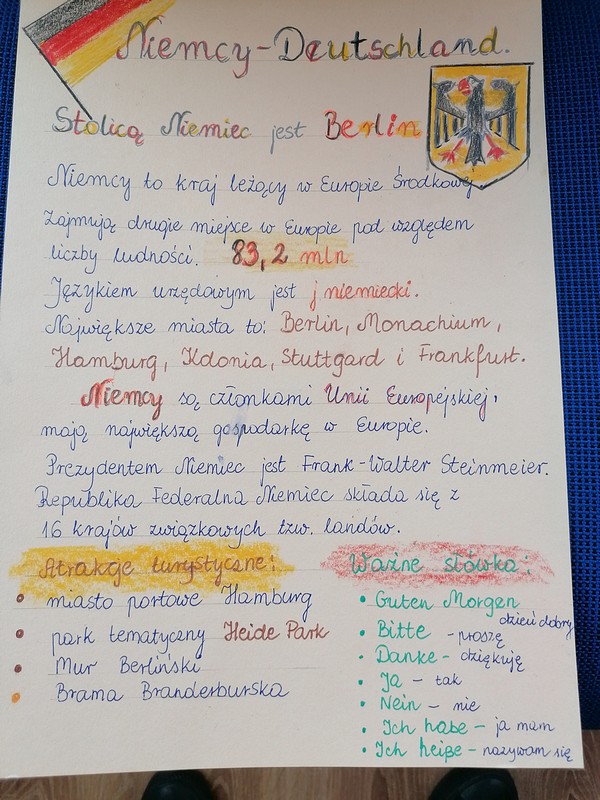 Niemcy-Deutschland.
Stolicą Niemiec jest Berlin
Niemcy to kraj leżący w Europie Środkowej.
Zajmują drugie miejsce w Europie pod względem
liczby ludności. 83,2 mln
Językiem urzędowym jest j niemiecki.
Największe miasta to: Berlin, Monachium,
Hamburg, Kolonia, Stuttgard i Frankfurt.
Niemcy są członkami Unii Europejskiej,
mają największą gospodarkę w Europie.
Prezydentem Niemiec jest Frank-Walter Steinmeier.
Republika Federalna Niemiec składa się z
16 krajów związkowych tzw. landów.
Atrakcje turystyczne:
• miasto portowe Hamburg
• park tematyczny Heide Park
• Mur Berliński
• Brama Branderburska
Ważne słówka:
• Guten Morgen
dzień dobry
• Bitte - proszę
• Danke - dziękuję
• Ja - tak
• Nein - nie
• Ich habe - ja mam
• Ich heiße - nazywam się